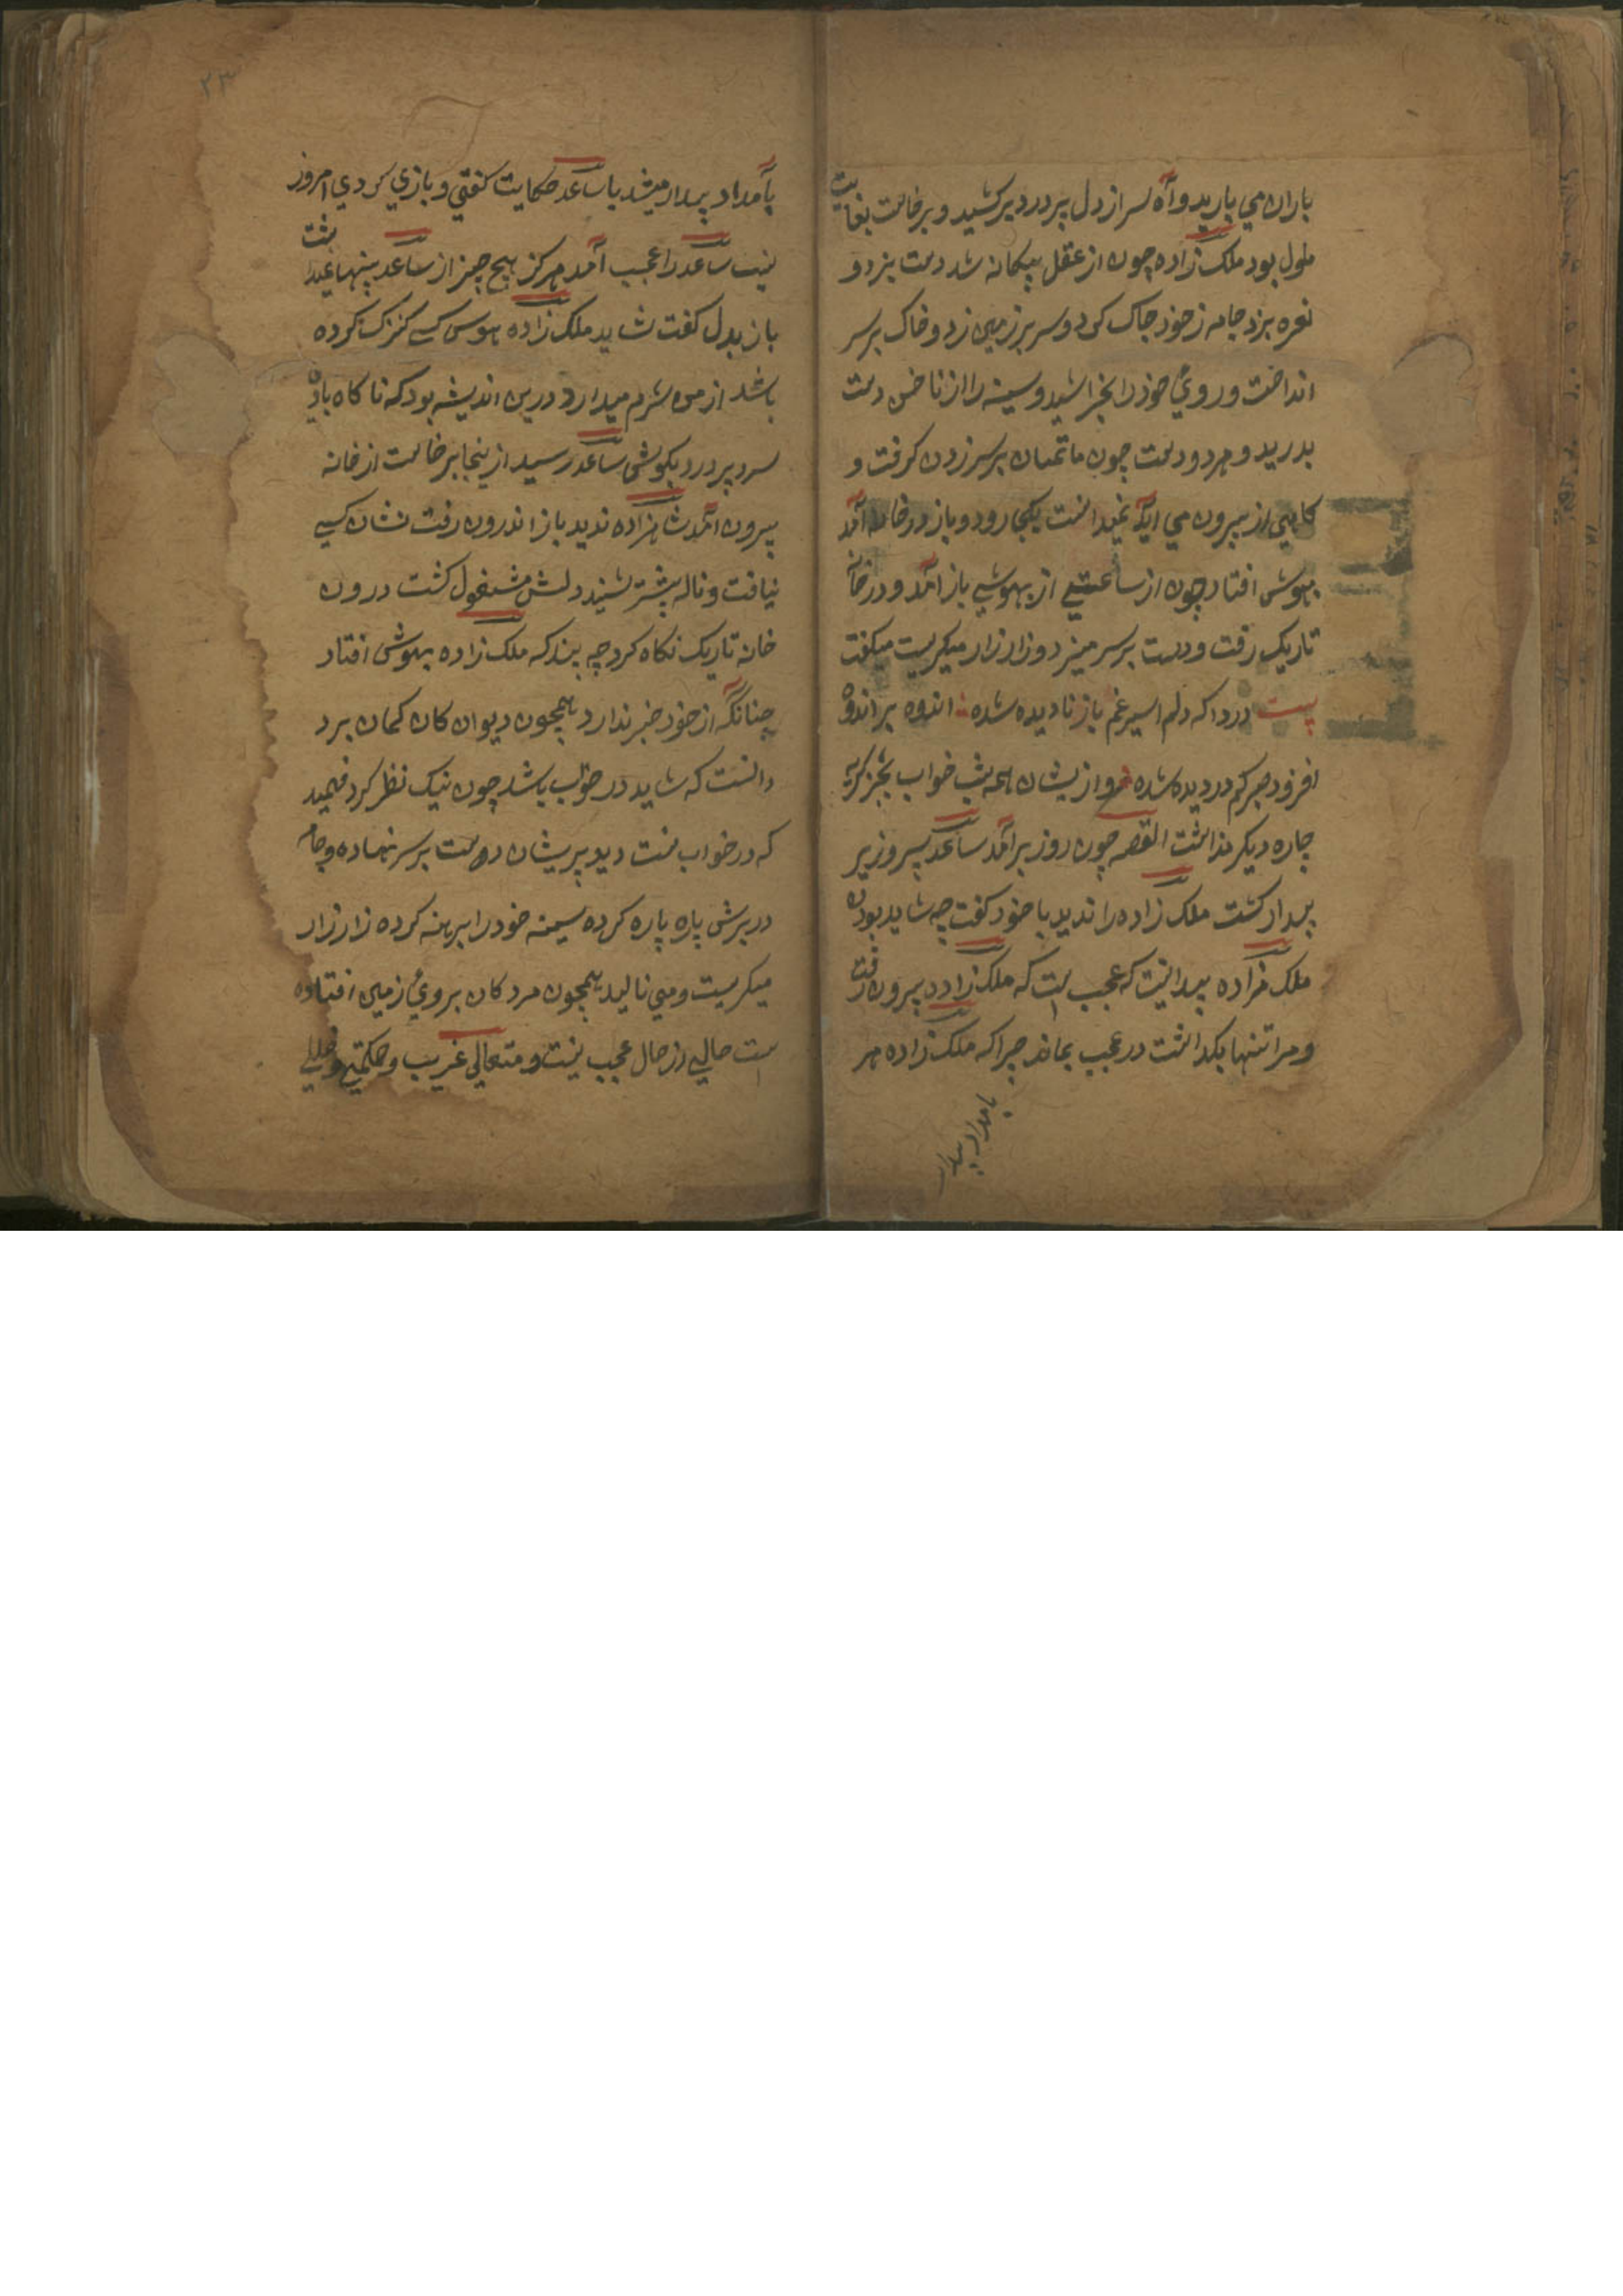 باران مي باريد و آه سر از دل پر درد بركشيد و برخاست بغايت
ملول بود ملك زاده چون از عقل بيكانه شد دست بزد و
نعره بزد جامه ز خود چاك كرد و سر بر زمين زد و خاك بر سر
انداخت و روي خود را بخراشيد و سينه را از ناخن دست
بدريد و هر دو دست چون ماتميان بر سر زدن كرفت و
كاهي از بيرون مي آيد نميدانست بكجا رود و باز در خانه آمد
بيهوش افتاد چون از ساعتي از بيهوشي باز آمد و در خانه
تاريك رفت و دست بر سر ميزد و زار زار ميكريست ميكفت
بيت دردا كه دلم اسير غم باز ناديده شده اندوه بر اندوه
افزود جبركم در ديده شده و از ايشان همه شب خواب بجز كريه
چاره ديكر نداشت القصه چون روز برآمد ساعد پسر وزير
بيدار كشت ملك زاده را نديد با خود كفت چه شايد بوده
ملك زاده بيدانيت كه عجب است كه ملك زاده بيرون رفت
و مرا تنها بكداشت در عجب بماند چرا كه ملك زاده هر
بامداد بيدار
٢٣
بامداد بيدار ميشد با ساعد حكايت كفتي و بازي كردي امروز
نيست ساعد را عجب آمد هركز هيچ چيز از ساعد پنها نميداشت
باز بدل كفت شايد ملك زاده هوس كسے كنزك كرده
باشد از من شرم ميدارد درين انديشه بود كه ناكاه باد
سرد پر درد بكوش ساعد رسيد از ينجا برخاست از خانه
بيرون آمد شاهزاده نديد باز اندرون رفت نشان كسے
نيافت و ناله بيشتر شنيد دلش مشغول كشت درون
خانه تاريك نكاه كرد چه بيند كه ملك زاده بيهوش افتاد
چنانكه از خود خبر ندارد همچون ديوان كان كمان برد
دانست كه شايد در خواب باشد چون نيك نظر كرد فهميد
كه در خواب نيست ديد پريشان دست بر سر نهاده و جامه
در برش پاره پاره كرده سينه خود را برهنه كرده زار زار
ميكريست و مي ناليد همچون مرد كان بروي زمين افتاده
است حالي از حال عجب نيست و متحالي غريب و حكمتي و خللي